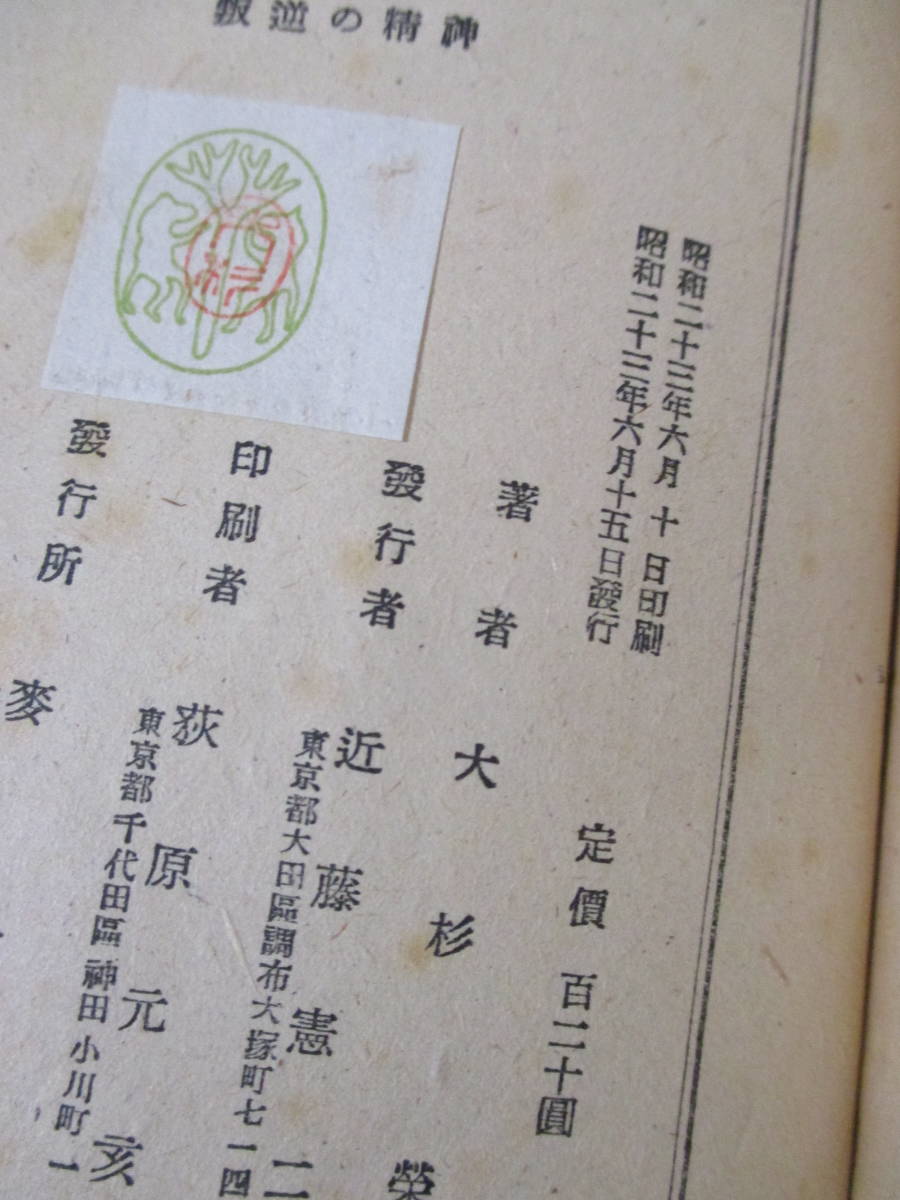 神精の逆叛
昭和二十三年六月 十 日印刷
昭和二十三年六月十五日發行
定價 百二十圓
著者 大杉榮
發行者 近藤憲二
東京都大田區調布大塚町七一四
印刷者 荻原元亥
東京都千代田區神田小川町一
發行所 麥